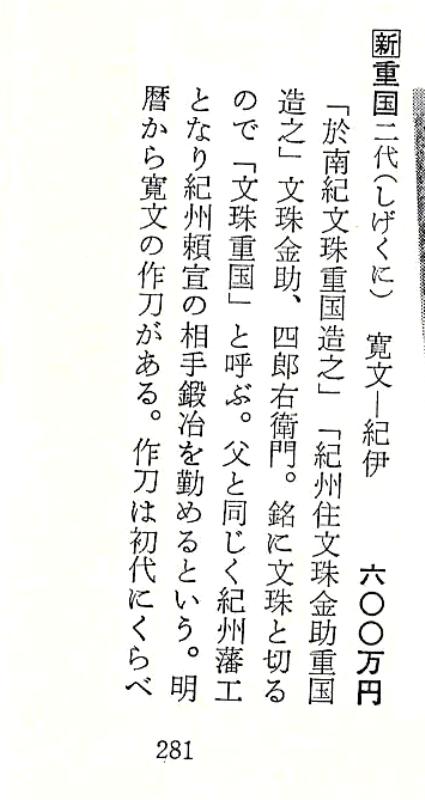 新重国二代(しげくに) 寛文―紀伊 六〇〇万円
「於南紀文珠重国造之」「紀州住文珠金助重国
造之」文珠金助、四郎右衛門。銘に文珠と切る
ので「文珠重国」と呼ぶ。父と同じく紀州藩工
となり紀州頼宣の相手鍛冶を勤めるという。明
暦から寛文の作刀がある。作刀は初代にくらべ
281